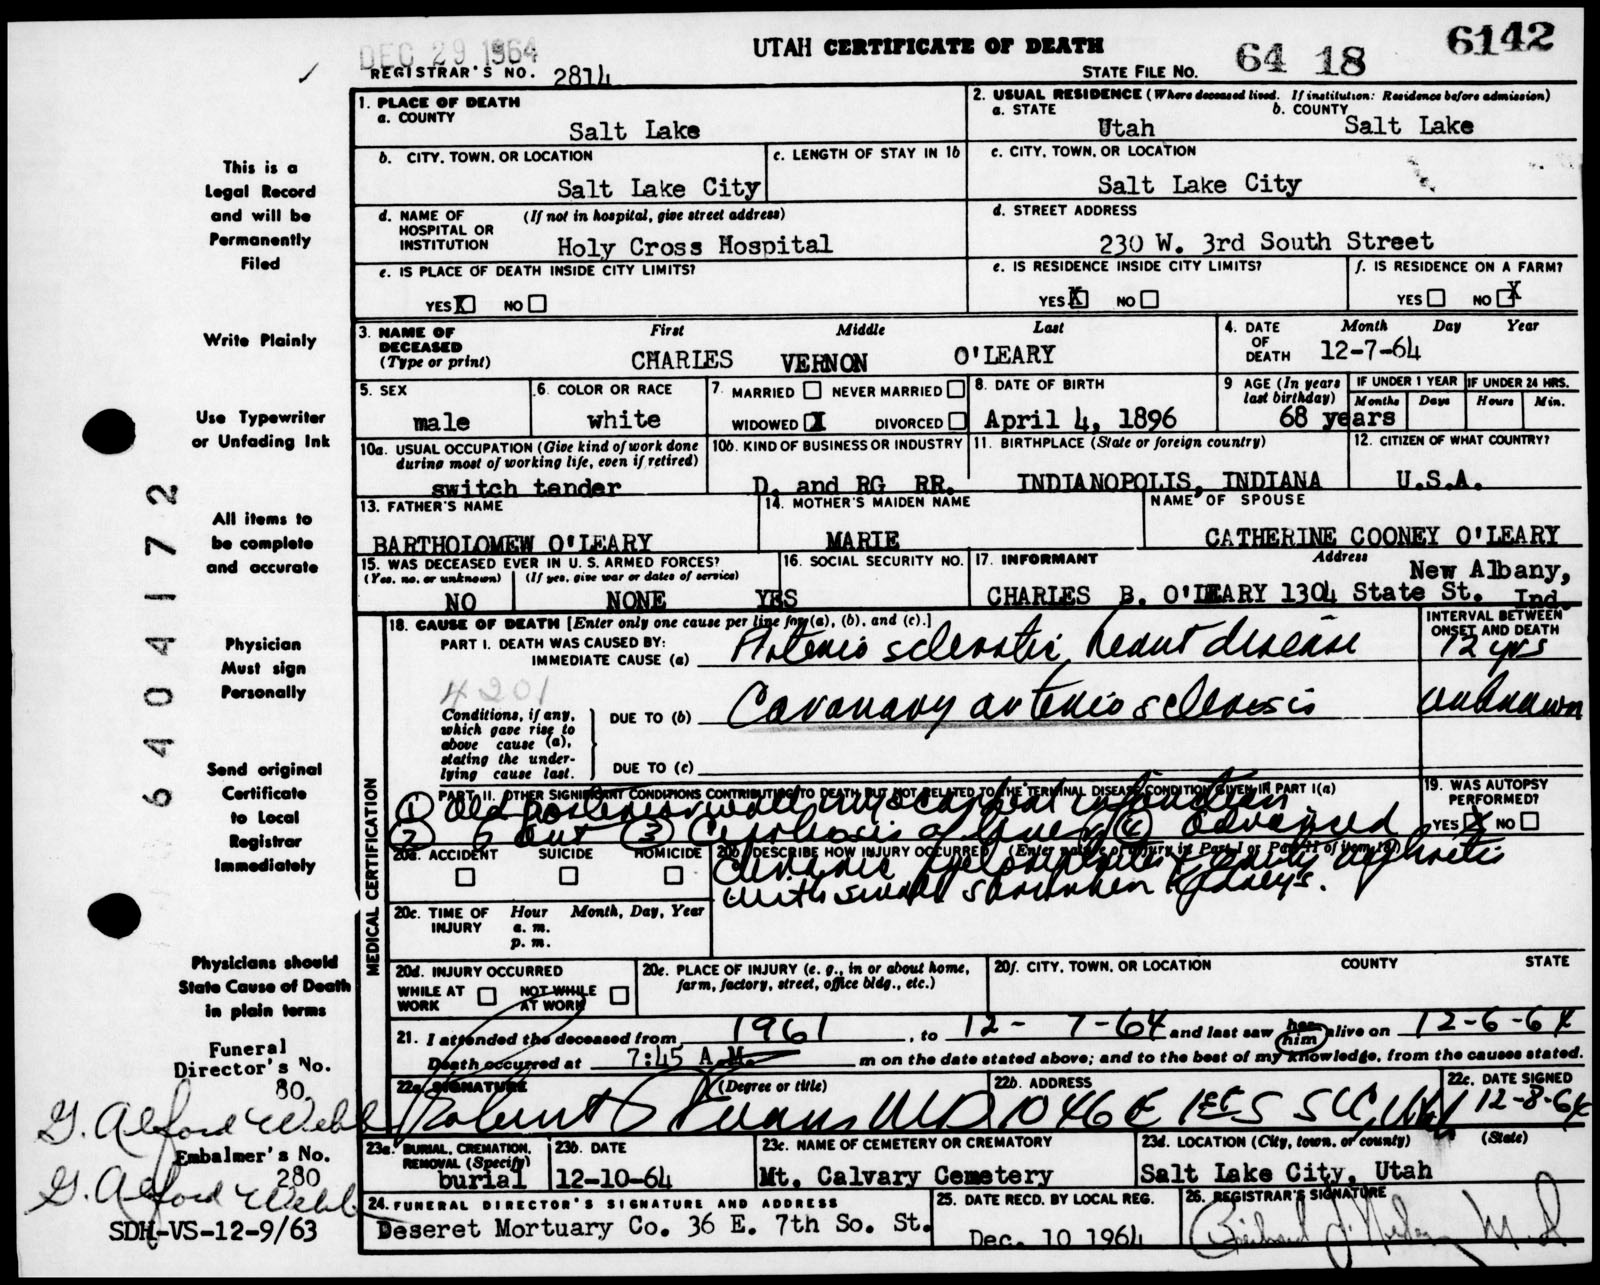 DEC 29 1964
UTAH CERTIFICATE OF DEATH
REGISTRAR'S NO. 2814
STATE FILE NO. 64 18 6142
1. PLACE OF DEATH
a. COUNTY
Salt Lake
2. USUAL RESIDENCE (Where deceased lived. If institution: Residence before admission)
a. STATE Utah
b. COUNTY Salt Lake
b. CITY, TOWN, OR LOCATION
Salt Lake City
c. LENGTH OF STAY IN 1b
c. CITY, TOWN, OR LOCATION
Salt Lake City
d. NAME OF HOSPITAL OR INSTITUTION (If not in hospital, give street address)
Holy Cross Hospital
d. STREET ADDRESS
230 W. 3rd South Street
e. IS PLACE OF DEATH INSIDE CITY LIMITS?
YES X NO
e. IS RESIDENCE INSIDE CITY LIMITS?
YES X NO
f. IS RESIDENCE ON A FARM?
YES NO X
3. NAME OF DECEASED (Type or print)
First Middle Last
CHARLES VERNON O'LEARY
4. DATE OF DEATH Month Day Year
12-7-64
5. SEX
male
6. COLOR OR RACE
white
7. MARRIED NEVER MARRIED
WIDOWED X DIVORCED
8. DATE OF BIRTH
April 4, 1896
9 AGE (In years last birthday)
68 years
IF UNDER 1 YEAR
Months Days
IF UNDER 24 HRS.
Hours Min.
10a. USUAL OCCUPATION (Give kind of work done during most of working life, even if retired)
switch tender
10b. KIND OF BUSINESS OR INDUSTRY
D. and RG RR.
11. BIRTHPLACE (State or foreign country)
INDIANOPOLIS, INDIANA
12. CITIZEN OF WHAT COUNTRY?
U.S.A.
13. FATHER'S NAME
BARTHOLOMEW O'LEARY
14. MOTHER'S MAIDEN NAME
MARIE
NAME OF SPOUSE
CATHERINE COONEY O'LEARY
15. WAS DECEASED EVER IN U. S. ARMED FORCES?
(Yes, no, or unknown) (If yes, give war or dates of service)
NO NONE
16. SOCIAL SECURITY NO.
YES
17. INFORMANT Address
CHARLES B. O'LEARY 1304 State St. New Albany, Ind.
18. CAUSE OF DEATH [Enter only one cause per line for (a), (b), and (c).]
INTERVAL BETWEEN ONSET AND DEATH
PART I. DEATH WAS CAUSED BY:
IMMEDIATE CAUSE (a) Arterio sclerotic heart disease 12 yrs
4201
Conditions, if any, which gave rise to above cause (a), stating the underlying cause last.
DUE TO (b) Coronary arterio sclerosis unknown
DUE TO (c)
MEDICAL CERTIFICATION
PART II. OTHER SIGNIFICANT CONDITIONS CONTRIBUTING TO DEATH BUT NOT RELATED TO THE TERMINAL DISEASE CONDITION GIVEN IN PART I(a)
(1) Old posterior wall myocardial infarction
(2) Gout (3) Cirrhosis of liver (4) advanced
chronic pyelonephritis & gouty nephritis
with small shrunken kidneys.
19. WAS AUTOPSY PERFORMED?
YES X NO
20a. ACCIDENT SUICIDE HOMICIDE
20b. DESCRIBE HOW INJURY OCCURRED (Enter nature of injury in Part I or Part II of item 18)
20c. TIME OF INJURY Hour Month, Day, Year
a. m.
p. m.
20d. INJURY OCCURRED
WHILE AT WORK NOT WHILE AT WORK
20e. PLACE OF INJURY (e. g., in or about home, farm, factory, street, office bldg., etc.)
20f. CITY, TOWN, OR LOCATION COUNTY STATE
21. I attended the deceased from 1961, to 12-7-64 and last saw her him alive on 12-6-64
Death occurred at 7:45 A.M. m on the date stated above; and to the best of my knowledge, from the causes stated.
22a. SIGNATURE (Degree or title)
Robert Evans MD
22b. ADDRESS
1046 E 1st S SLC, Utah
22c. DATE SIGNED
12-8-64
23a. BURIAL, CREMATION, REMOVAL (Specify)
burial
23b. DATE
12-10-64
23c. NAME OF CEMETERY OR CREMATORY
Mt. Calvary Cemetery
23d. LOCATION (City, town, or county) (State)
Salt Lake City, Utah
24. FUNERAL DIRECTOR'S SIGNATURE AND ADDRESS
Deseret Mortuary Co. 36 E. 7th So. St.
25. DATE RECD. BY LOCAL REG.
Dec. 10 1964
26. REGISTRAR'S SIGNATURE
M.D.
This is a
Legal Record
and will be
Permanently
Filed
Write Plainly
Use Typewriter
or Unfading Ink
All items to
be complete
and accurate
Physician
Must sign
Personally
Send original
Certificate
to Local
Registrar
Immediately
Physicians should
State Cause of Death
in plain terms
Funeral
Director's No.
80.
G. Alford Webb
Embalmer's No.
280
G. Alford Webb
SDH-VS-12-9/63
64 04172